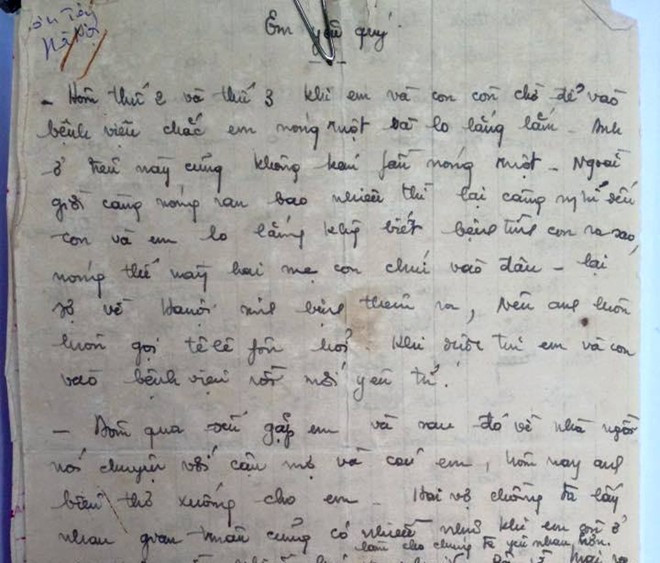 Sơn Tây
Hà Nội
Em yêu quý
- Hôm thứ 2 và thứ 3 khi em và con còn chờ để vào
bệnh viện chắc em nóng ruột và lo lắng lắm - Anh
ở trên này cũng không kém phần nóng ruột - Ngoài
giời càng nóng ran bao nhiêu thì lại càng nghĩ đến
con và em lo lắng không biết bệnh tình con ra sao,
nóng thế này hai mẹ con chui vào đâu - lại
sợ về Hanội sinh bệnh thêm ra, nên anh luôn
luôn gọi têlêfôn hỏi. Khi được tin em và con
vào bệnh viện rồi mới yên trí.
- Hôm qua gặp em và sau đó về nhà ngồi
nói chuyện với cậu mợ và các em, hôm nay anh
biên thơ xuống cho em - Hai vợ chồng ta lấy
nhau gian truân cũng có nhiều như khi em còn ở
làm cho chúng ta yêu nhau hơn.